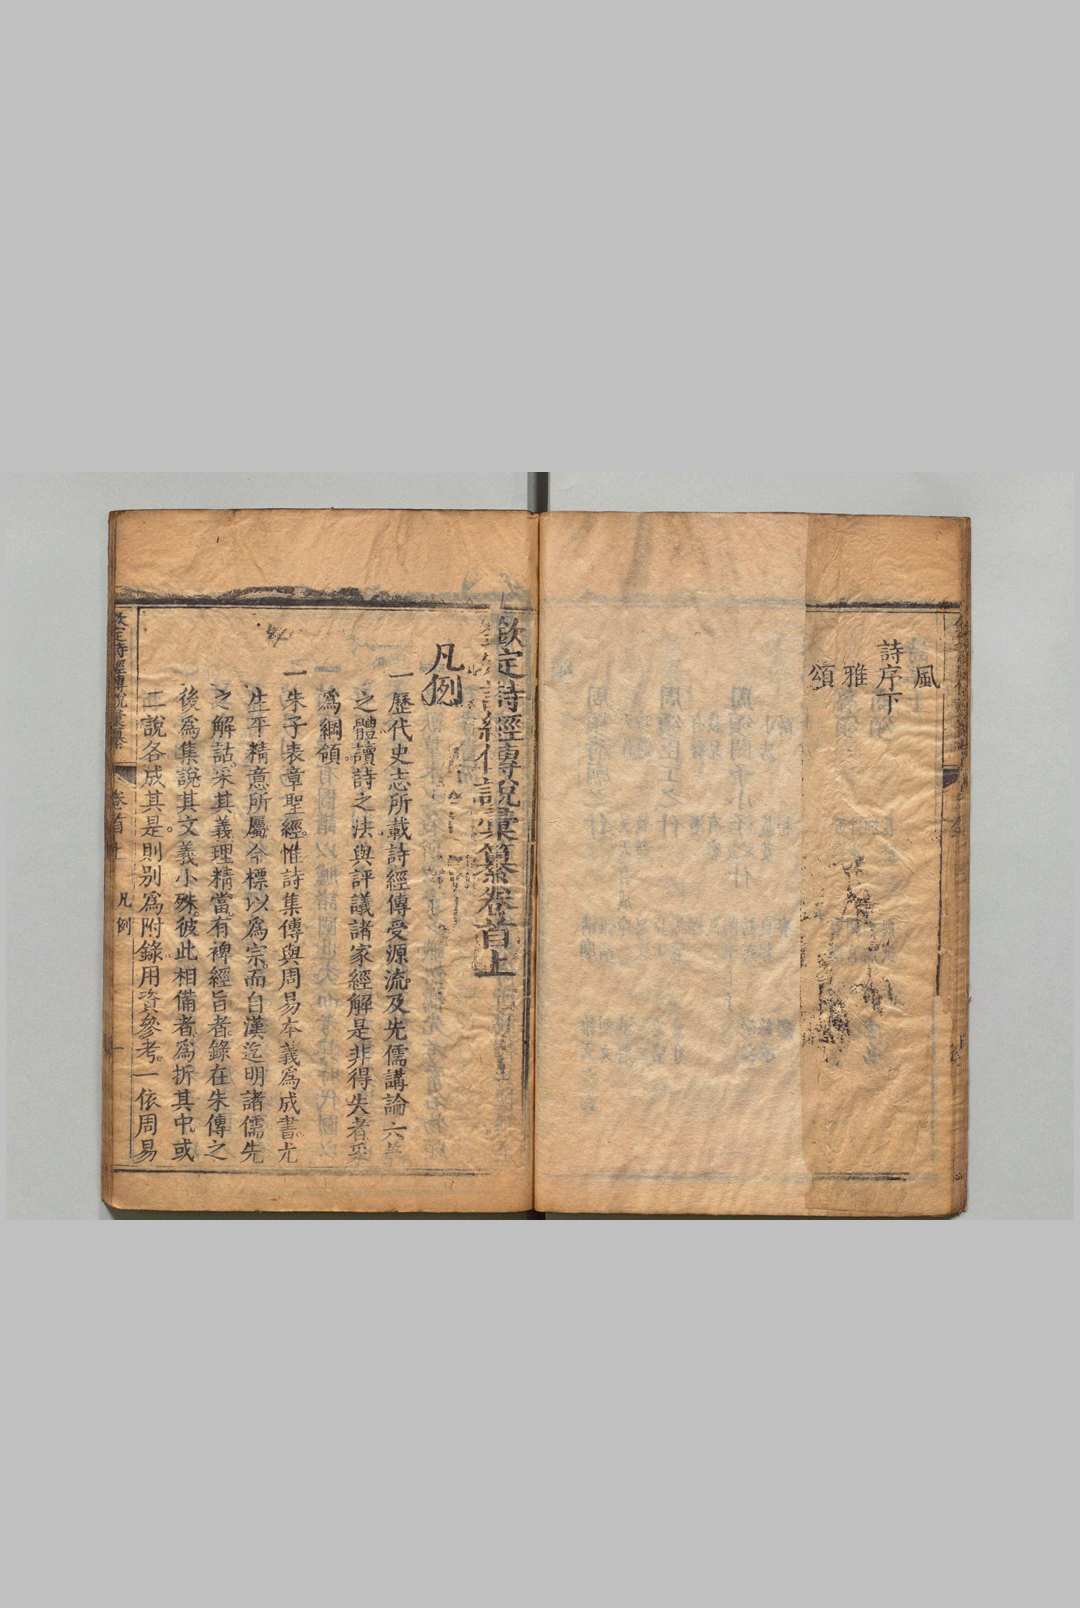 風
詩序下
雅
頌
欽定詩經傳說彙纂卷首上
凡例
一歷代史志所載詩經傳受源流及先儒講論六義
之體讀詩之法與評議諸家經解是非得失者采
爲綱領
一朱子表章聖經惟詩集傳與周易本義爲成書尤
生平精意所屬今標以爲宗而自漢迄明諸儒先
之解詁采其義理精當有裨經旨者錄在朱傳之
後爲集說其文義小殊彼此相備者爲折其中或
二說各成其是則別爲附錄用資參考一依周易
欽定詩經傳說彙纂
卷首上
凡例
一